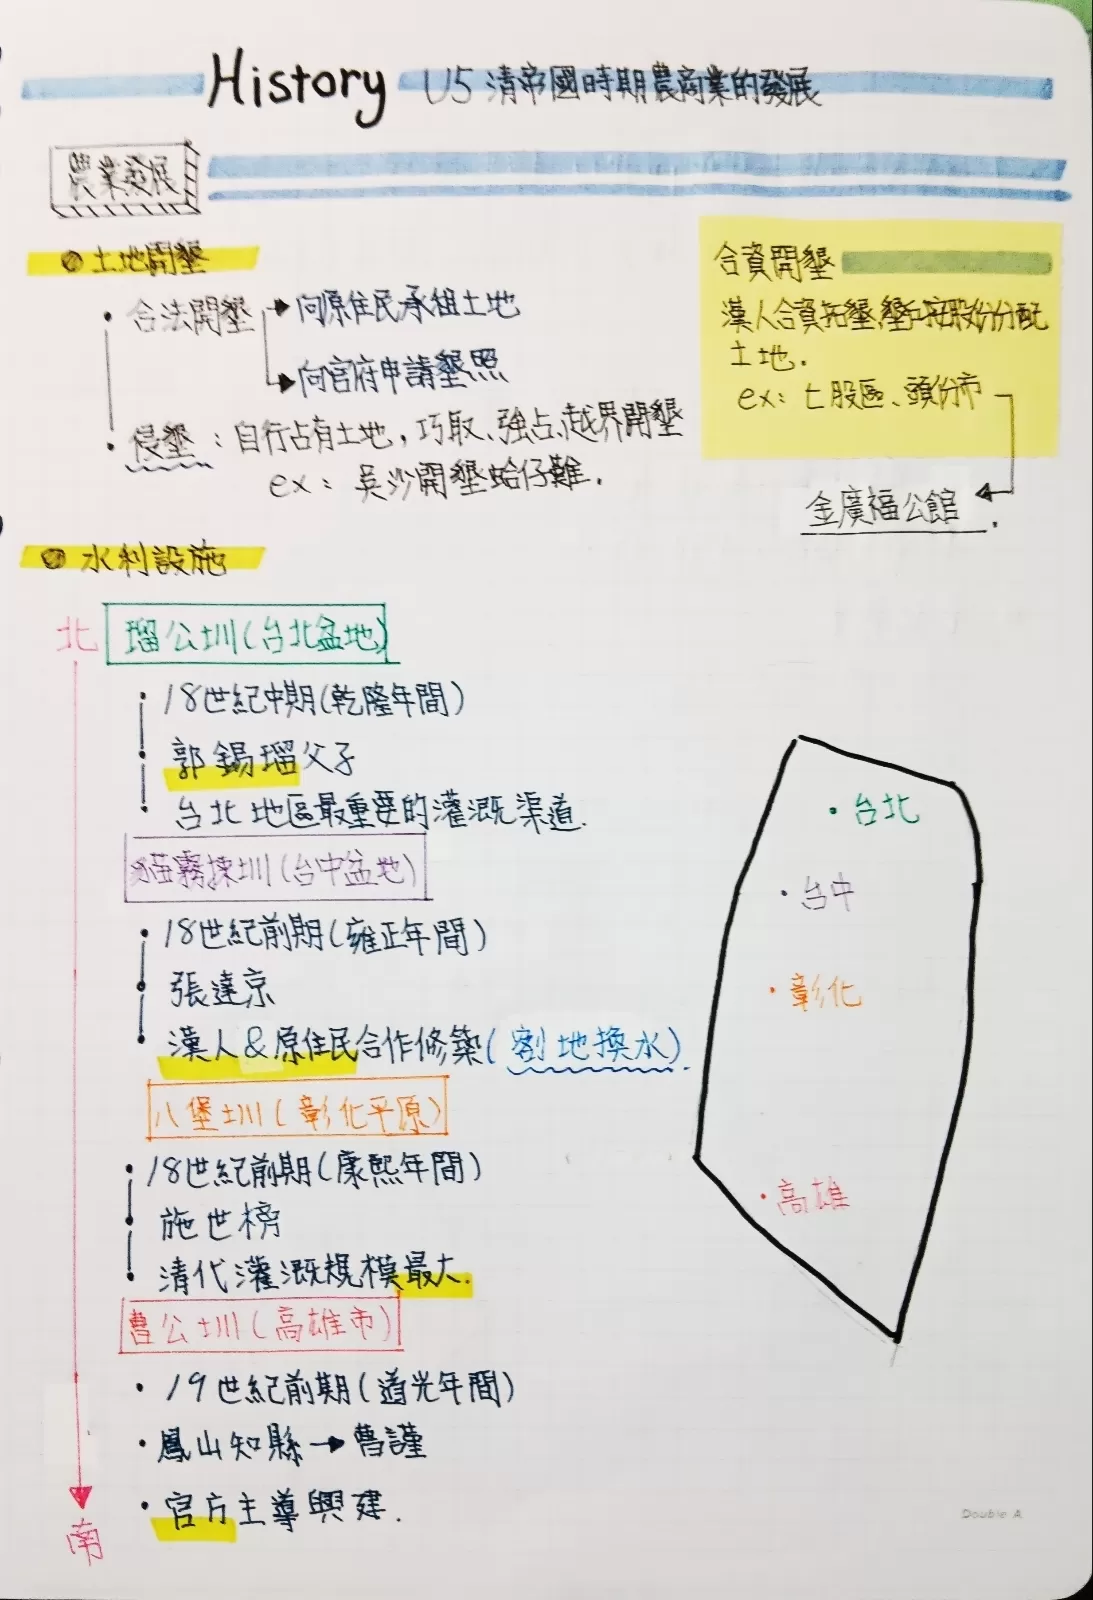 History U5 清帝國時期農商業的發展
農業發展
土地開墾
合法開墾 → 向原住民承租土地
→ 向官府申請墾照
侵墾：自行占有土地,巧取、強占、越界開墾
ex：吳沙開墾蛤仔難.
合資開墾
漢人合資拓墾,墾戶按股份分配
土地.
ex：七股區、頭份市
金廣福公館.
水利設施
北
瑠公圳(台北盆地)
18世紀中期(乾隆年間)
郭錫瑠父子
台北地區最重要的灌溉渠道.
貓霧捒圳(台中盆地)
18世紀前期(雍正年間)
張達京
漢人&原住民合作修築(割地換水).
八堡圳(彰化平原)
18世紀前期(康熙年間)
施世榜
清代灌溉規模最大.
曹公圳(高雄市)
19世紀前期(道光年間)
鳳山知縣→曹謹
官方主導興建.
南
台北
台中
彰化
高雄
Double A